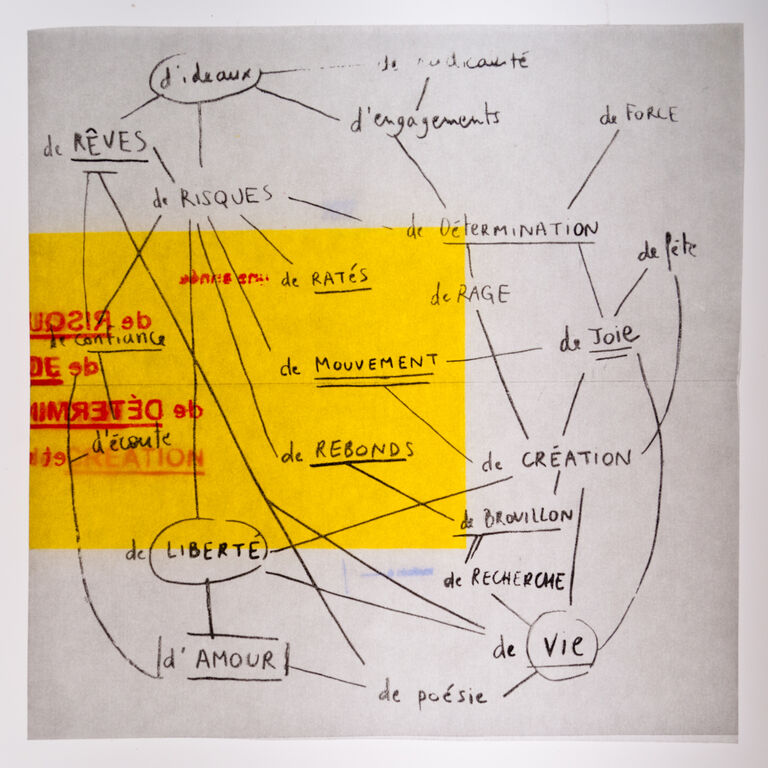 d'ideaux
de radicauté
d'engagements
de FORCE
de RÊVES
de RISQUES
de DéTERMINATION
de fête
une année
de RATÉS
de RAGE
de RISQU
de confiance
de JOIE
de MOUVEMENT
de DÉTERMIN
d'écoute
de REBONDS
de CRÉATION
CRÉATION
de BROUILLON
de LIBERTÉ
de RECHERCHE
d'AMOUR
de VIE
de poésie